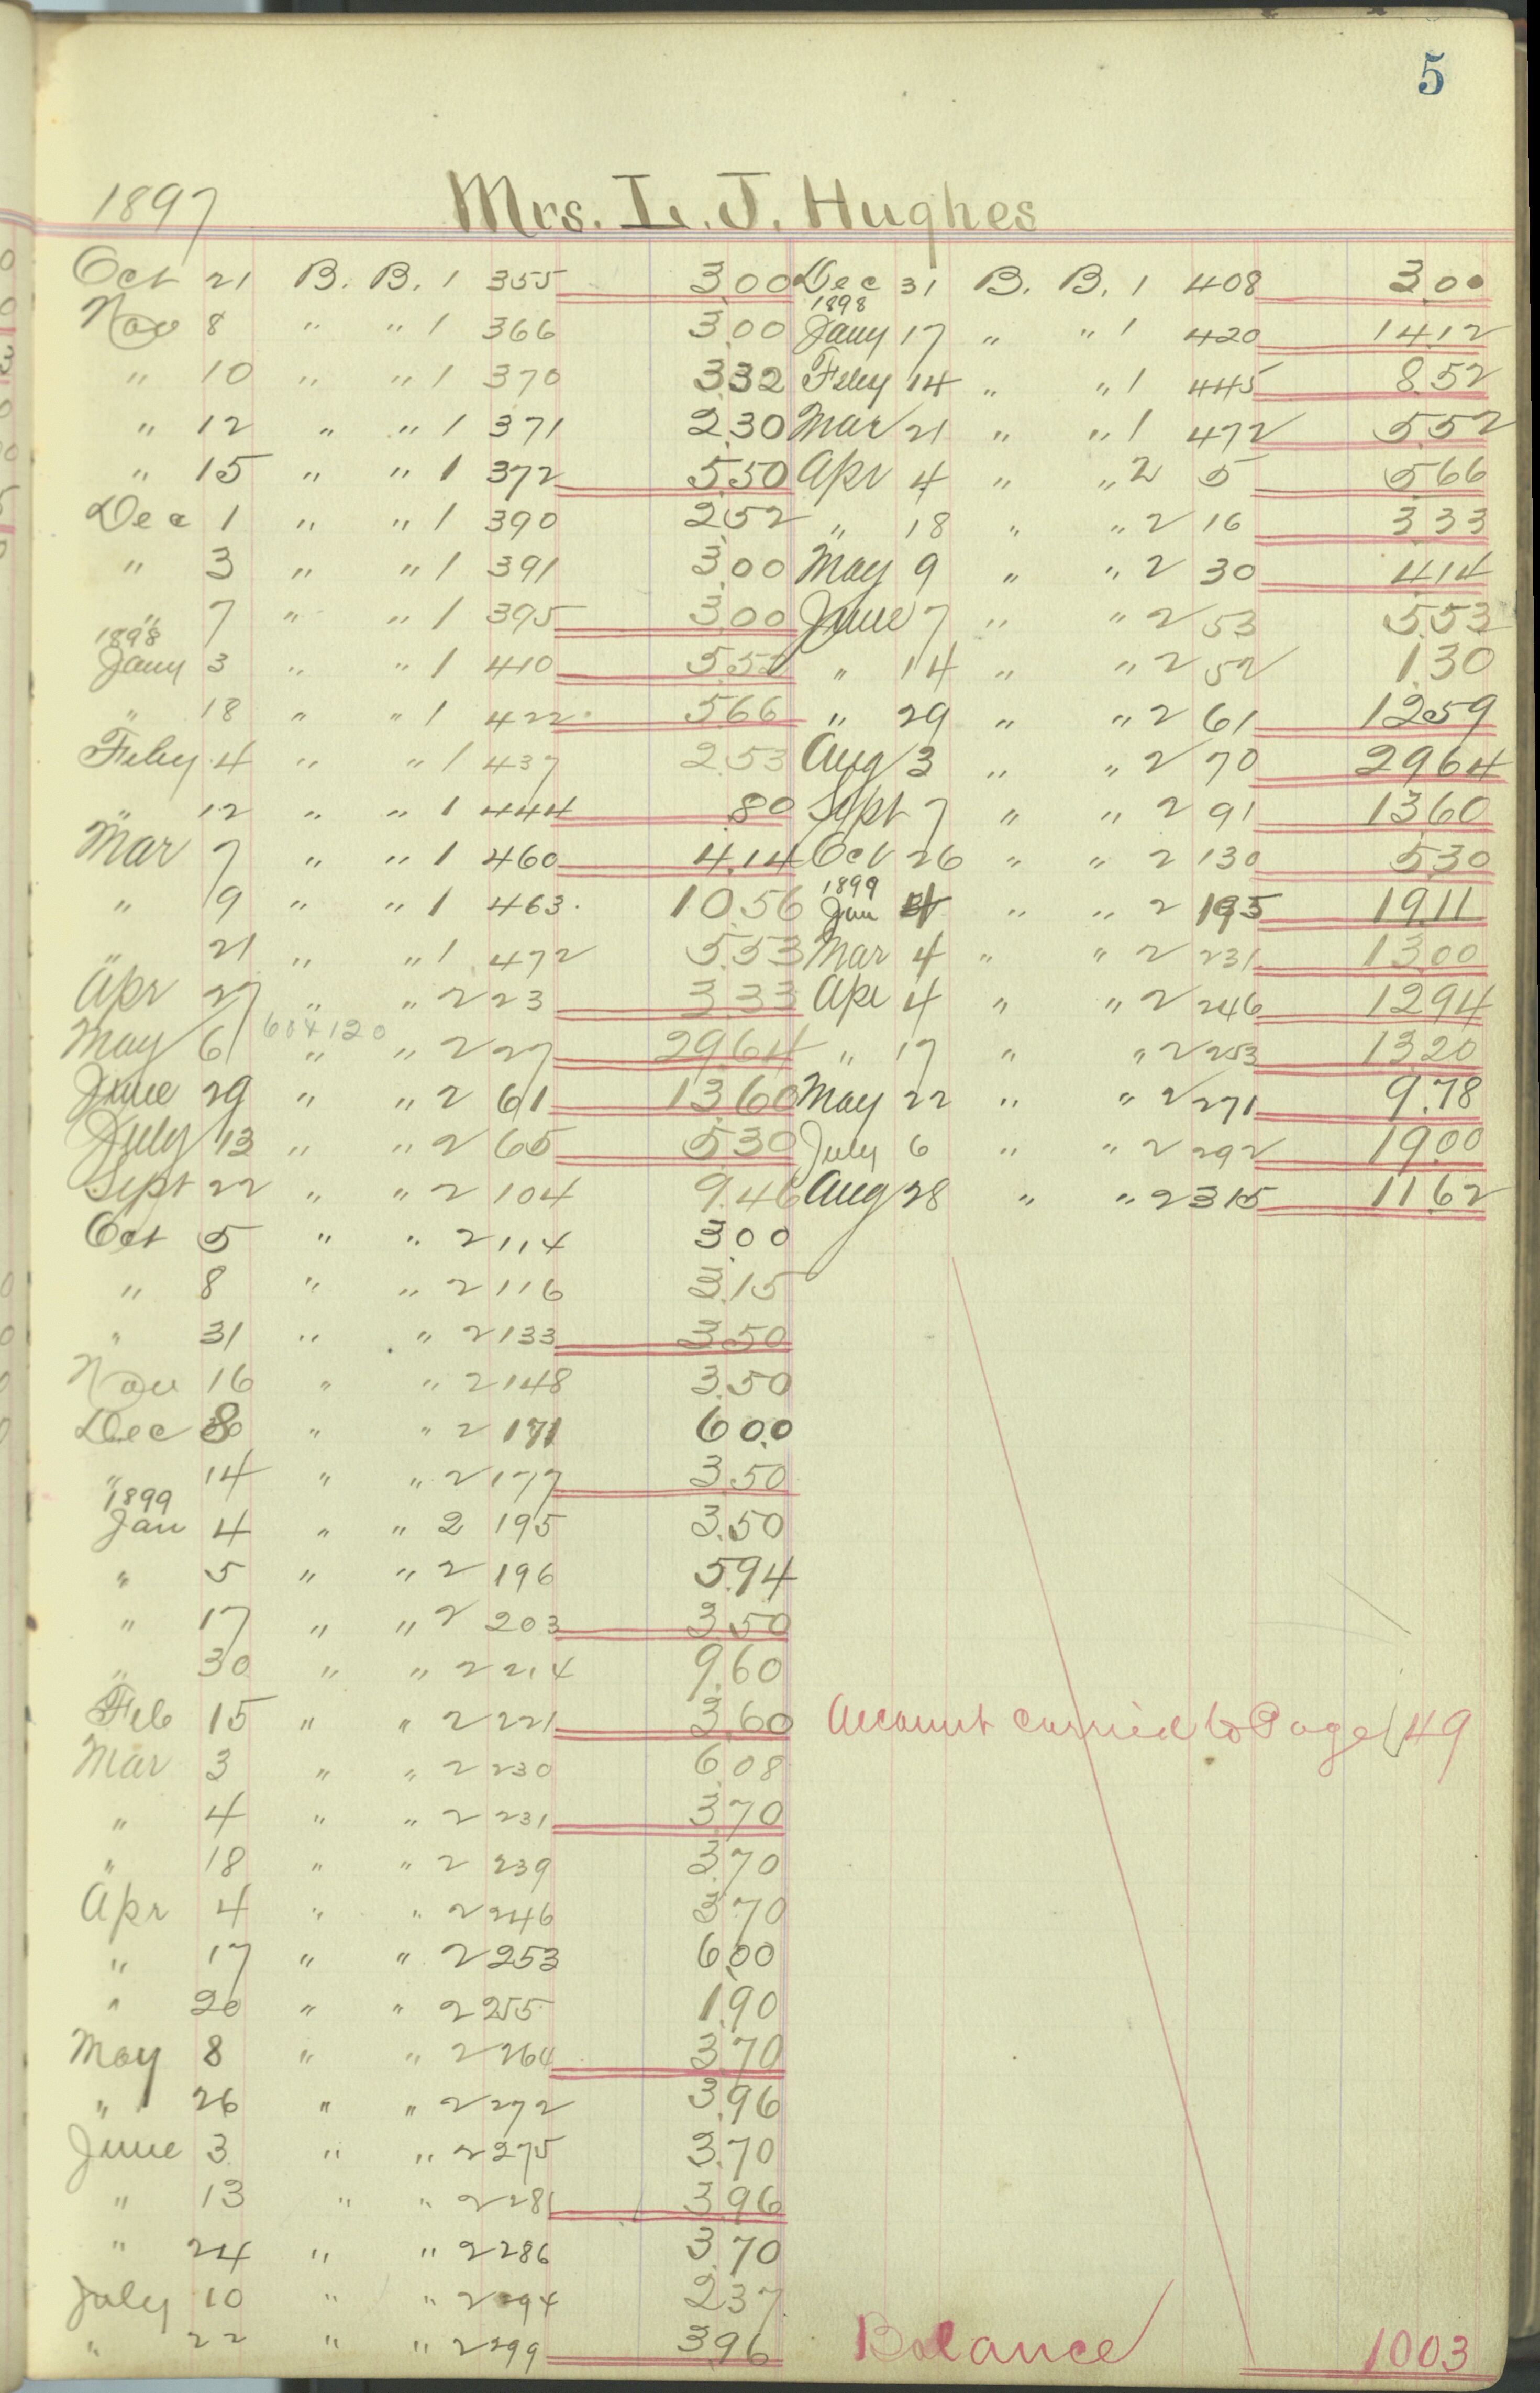 5
1897 Mrs. L. J. Hughes
Oct 21 B. B. 1 355 3.00 Dec 31 B. B. 1 408 3.00
1898
Nov 8 " " 1 366 3.00 Jany 17 " " 1 420 14.12
" 10 " " 1 370 3.32 Feby 14 " " 1 445 8.52
" 12 " " 1 371 2.30 Mar 21 " " 1 472 5.52
" 15 " " 1 372 5.50 Apr 4 " " 2 5 5.66
Dec 1 " " 1 390 2.52 " 18 " " 2 16 3.33
" 3 " " 1 391 3.00 May 9 " " 2 30 4.14
" 7 " " 1 395 3.00 June 7 " " 2 53 5.53
1898
Jany 3 " " 1 410 5.52 " 14 " " 2 52 1.30
" 18 " " 1 422 5.66 " 29 " " 2 61 12.59
Feby 4 " " 1 437 2.53 Aug 3 " " 2 70 29.64
" 12 " " 1 444 .80 Sept 7 " " 2 91 13.60
Mar 7 " " 1 460 4.14 Oct 26 " " 2 130 5.30
1899
" 9 " " 1 463 10.56 Jan 4 " " 2 195 19.11
" 21 " " 1 472 5.53 Mar 4 " " 2 231 13.00
Apr 27 " " 2 23 3.33 Apr 4 " " 2 246 12.94
May 6 604120 " " 2 27 29.64 " 17 " " 2 253 13.20
June 29 " " 2 61 13.60 May 22 " " 2 271 9.78
July 13 " " 2 65 5.30 July 6 " " 2 292 19.00
Sept 22 " " 2 104 9.46 Aug 28 " " 2 315 11.62
Oct 5 " " 2 114 3.00
" 8 " " 2 116 3.15
" 31 " " 2 133 3.50
Nov 16 " " 2 148 3.50
Dec 8 " " 2 171 6.00
" 14 " " 2 177 3.50
1899
Jan 4 " " 2 195 3.50
" 5 " " 2 196 5.94
" 17 " " 2 203 3.50
" 30 " " 2 214 9.60
Feb 15 " " 2 221 3.60 Account carried to Page 149
Mar 3 " " 2 230 6.08
" 4 " " 2 231 3.70
" 18 " " 2 239 3.70
Apr 4 " " 2 246 3.70
" 17 " " 2 253 6.00
" 20 " " 2 255 1.90
May 8 " " 2 264 3.70
" 26 " " 2 272 3.96
June 3 " " 2 275 3.70
" 13 " " 2 281 3.96
" 24 " " 2 286 3.70
July 10 " " 2 294 2.37
" 22 " " 2 299 3.96 Balance 10 03